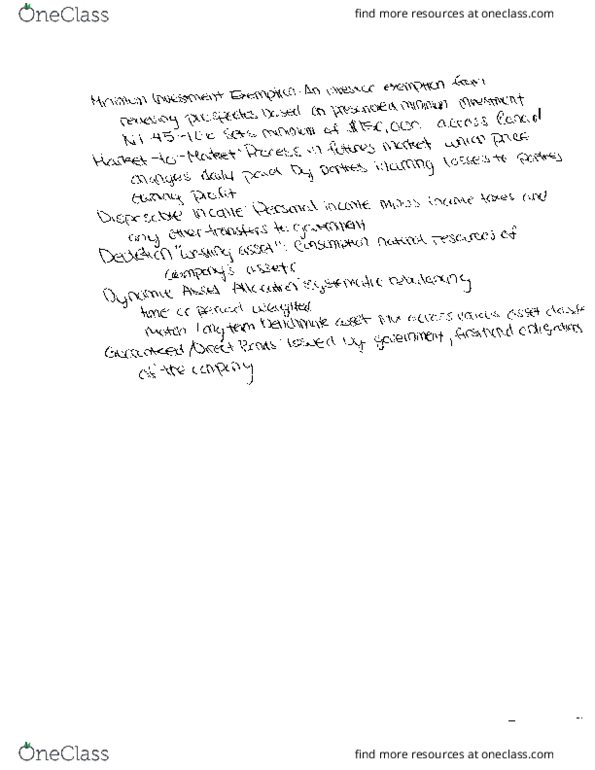 OneClass
find more resources at oneclass.com
Minimum Investment Exemption: An investor exemption from
receiving prospectus based on prescribed minimum investment
NI-45-106 sets minimum of $150,000 across Canada
Market-to-Market: Process in futures market which price
changes daily paid by parties incurring losses to parties
earning profit
Disposable Income: Personal income minus income taxes and
any other transfers to government
Depletion "wasting asset": Consumption natural resources of
company's assets
Dynamic Asset Allocation: systematic rebalancing
time or period weighted
match long term benchmark asset mix across various asset classes
Guaranteed/Direct Bonds: issued by government, firsthand obligations
of the company
OneClass
find more resources at oneclass.com